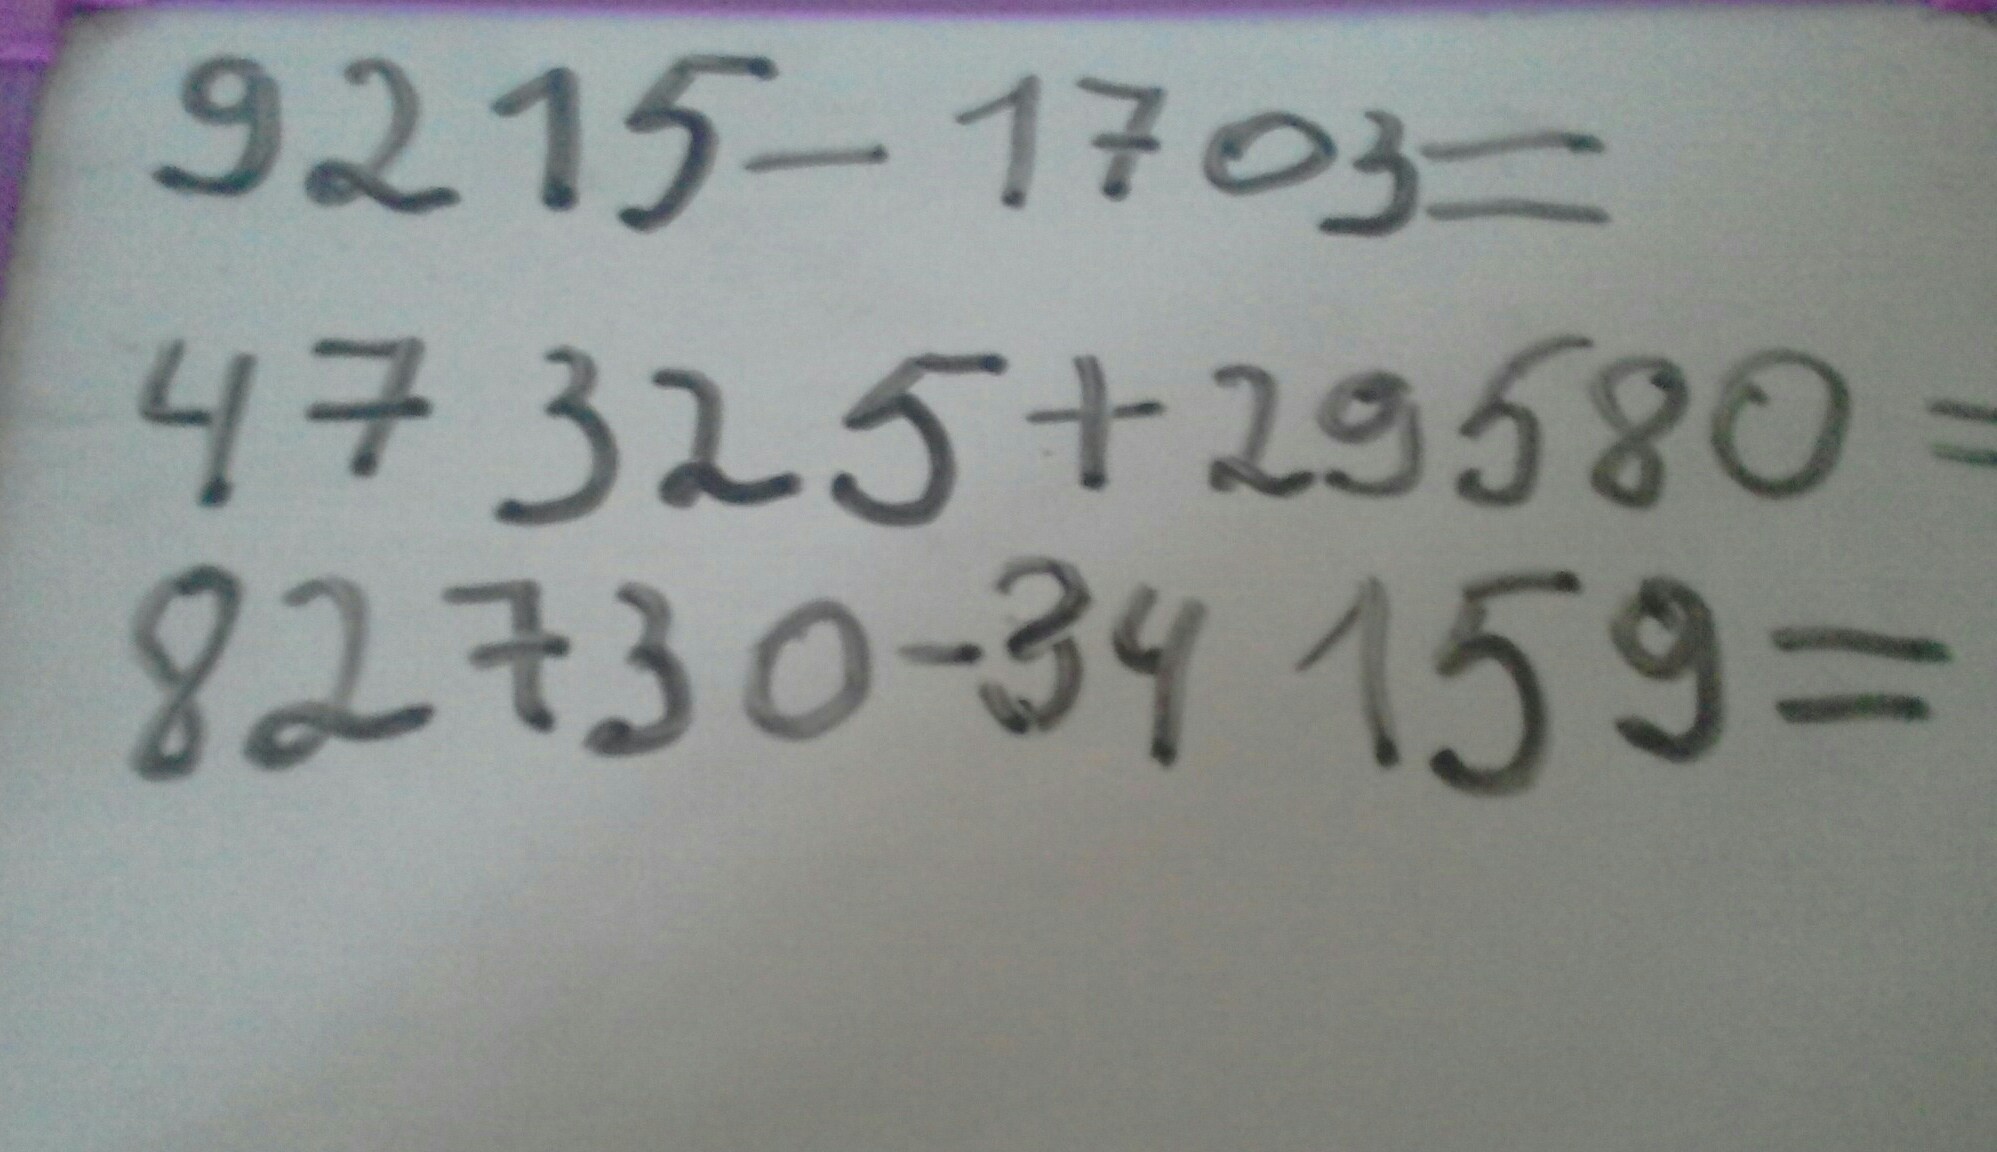 9215-1703=
47325+29580=
82730-34159=